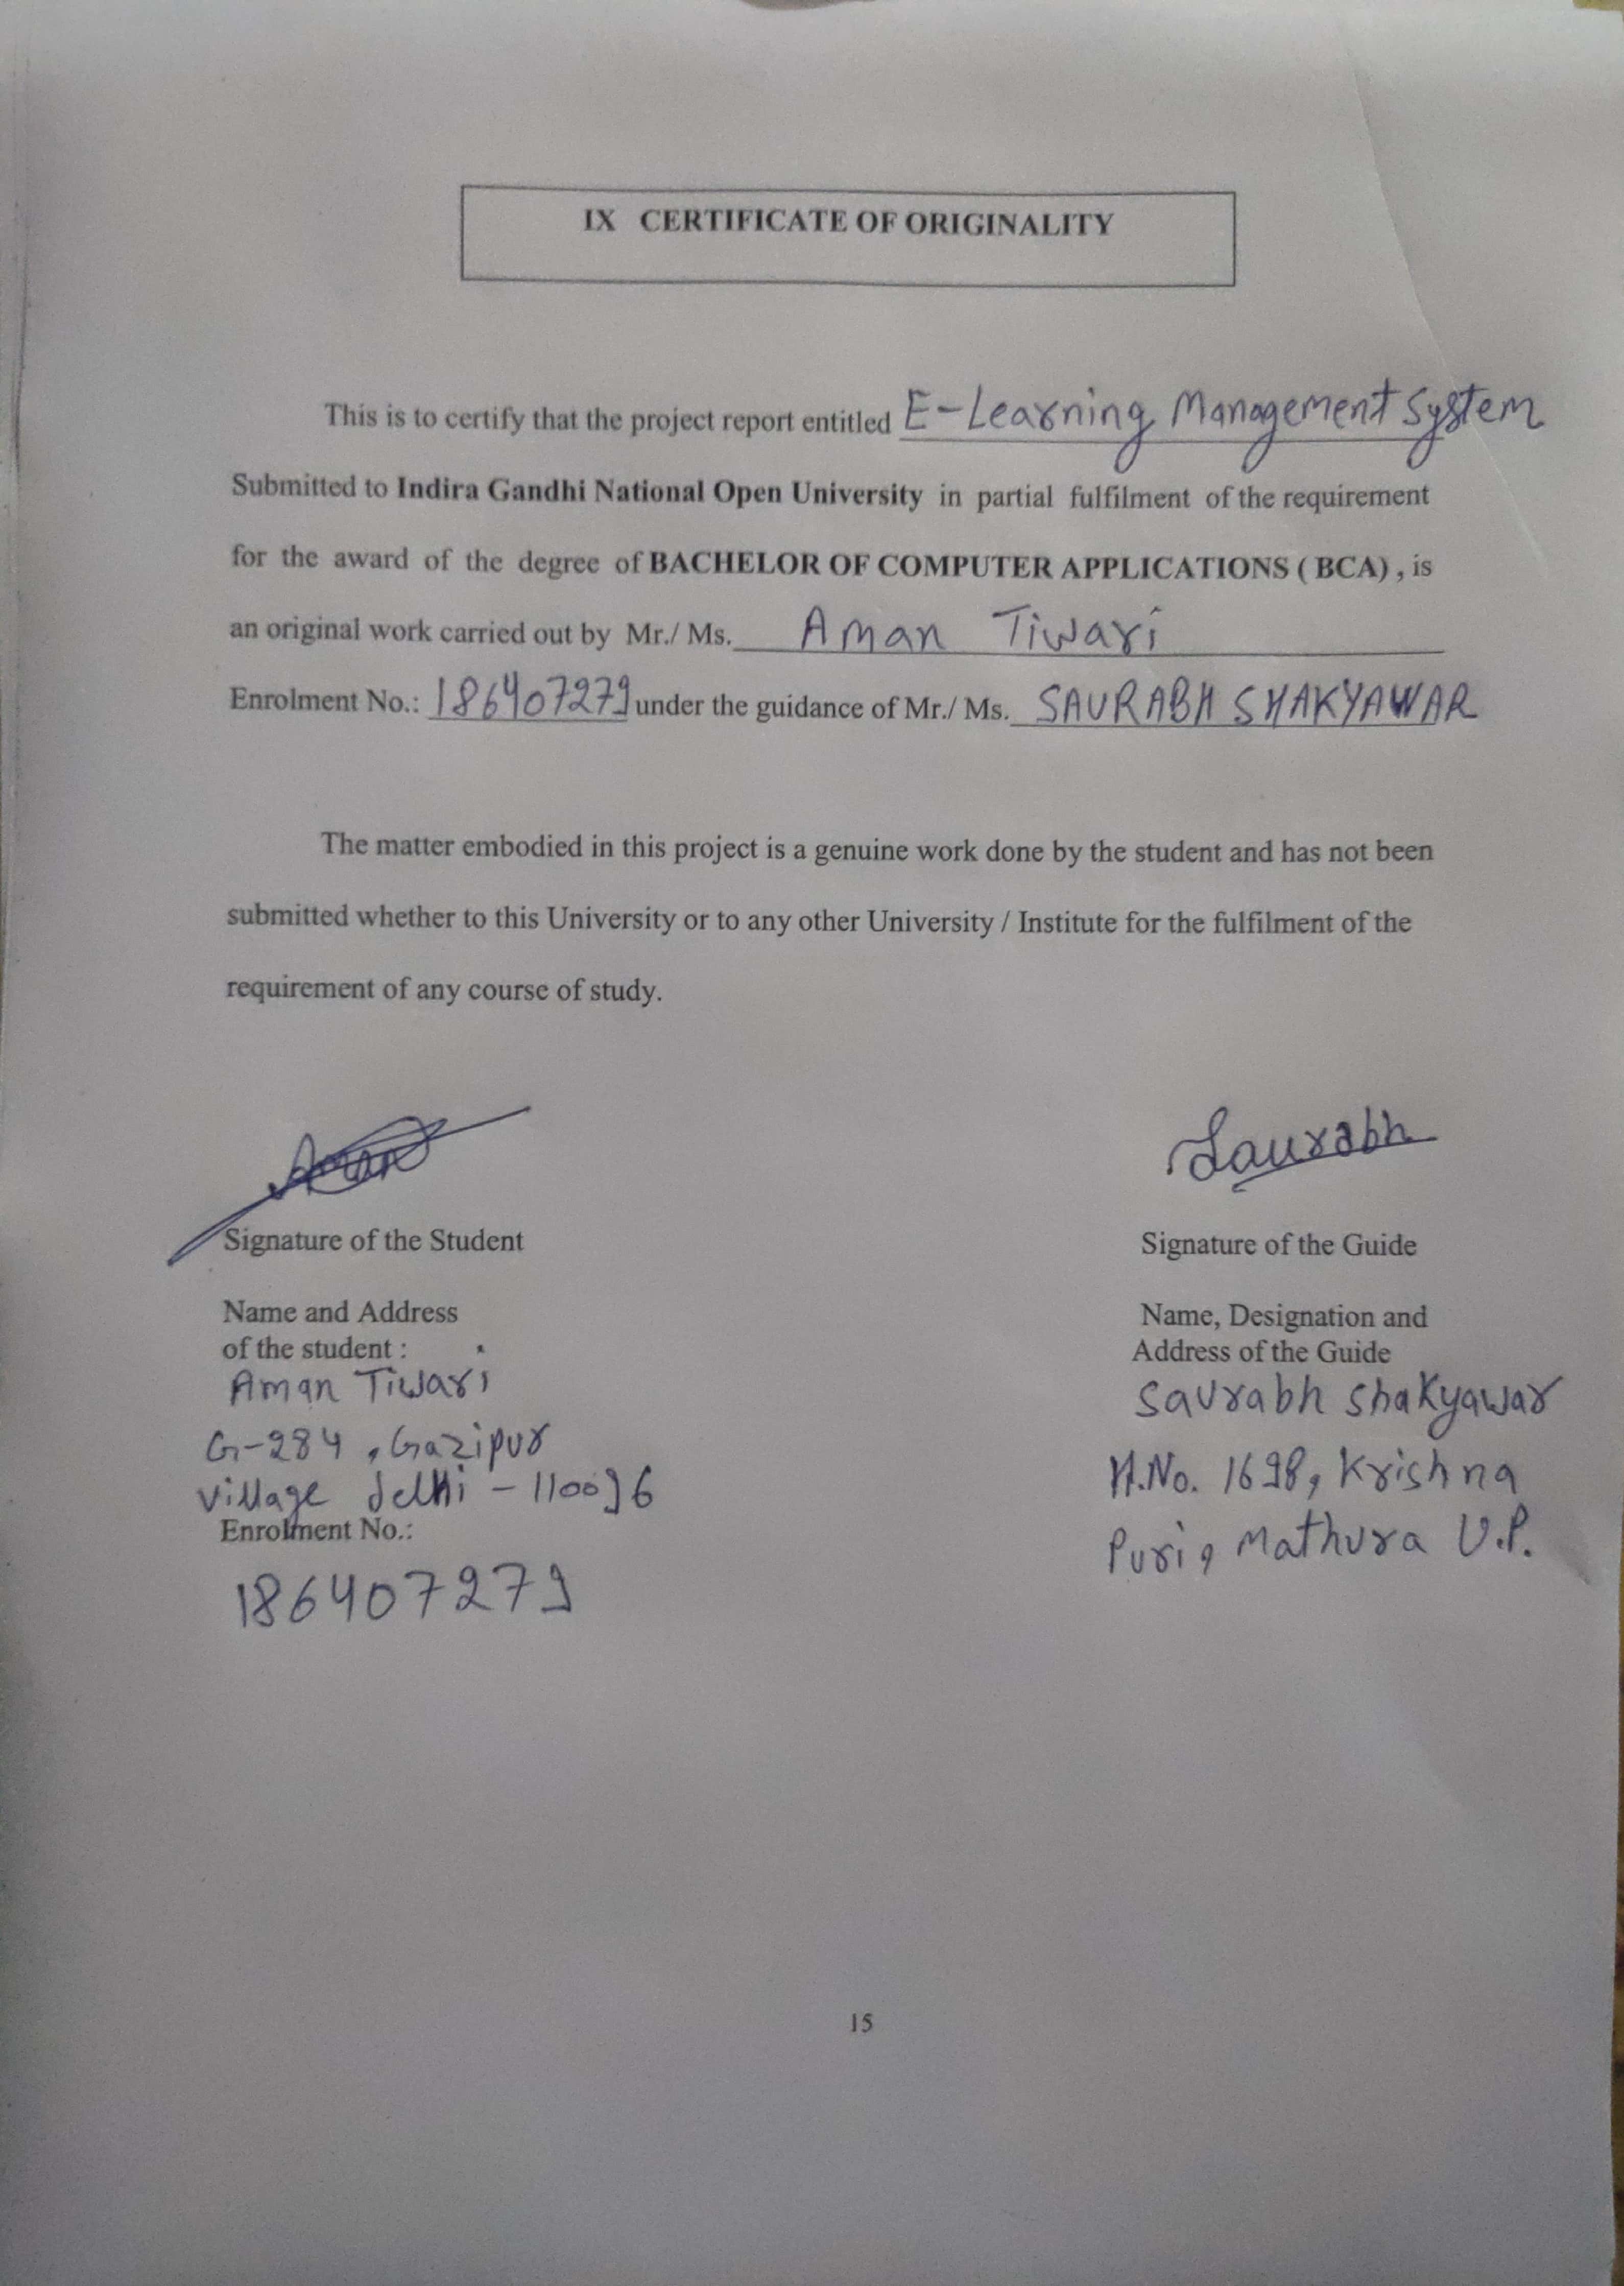 IX CERTIFICATE OF ORIGINALITY
This is to certify that the project report entitled E-Learning Management System
Submitted to Indira Gandhi National Open University in partial fulfilment of the requirement
for the award of the degree of BACHELOR OF COMPUTER APPLICATIONS ( BCA) , is
an original work carried out by Mr./ Ms. Aman Tiwari
Enrolment No.: 186407279 under the guidance of Mr./ Ms. SAURABH SHAKYAWAR
The matter embodied in this project is a genuine work done by the student and has not been
submitted whether to this University or to any other University / Institute for the fulfilment of the
requirement of any course of study.
Aman
Signature of the Student
Name and Address
of the student :
Aman Tiwari
G-284, Gazipur
Village delhi - 110096
Enrolment No.:
186407279
Saurabh
Signature of the Guide
Name, Designation and
Address of the Guide
Saurabh Shakyawar
H.No. 1698, Krishna
Puri, Mathura U.P.
15